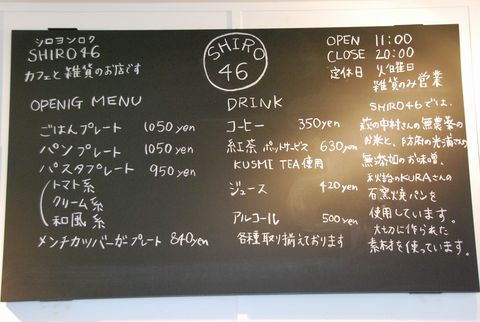 シロヨンロク
SHIRO46
カフェと雑貨のお店です
SHIRO
46
OPEN 11:00
CLOSE 20:00
定休日 火曜日
雑貨のみ営業
OPENIG MENU
ごはんプレート 1050yen
パンプレート 1050yen
パスタプレート 950yen
トマト系
クリーム系
和風系
メンチカツバーガープレート 840yen
DRINK
コーヒー 350yen
紅茶 ポットサービス 630yen
KUSMI TEA使用
ジュース 420yen
アルコール 500yen
各種取り揃えております
SHIRO46では、
萩の中村さんの無農薬の
お米と、防府の光浦さんの
無添加のお味噌、
秋鈴のKURAさんの
石窯焼パンを
使用しています。
大切に作られた
素材を使っています。